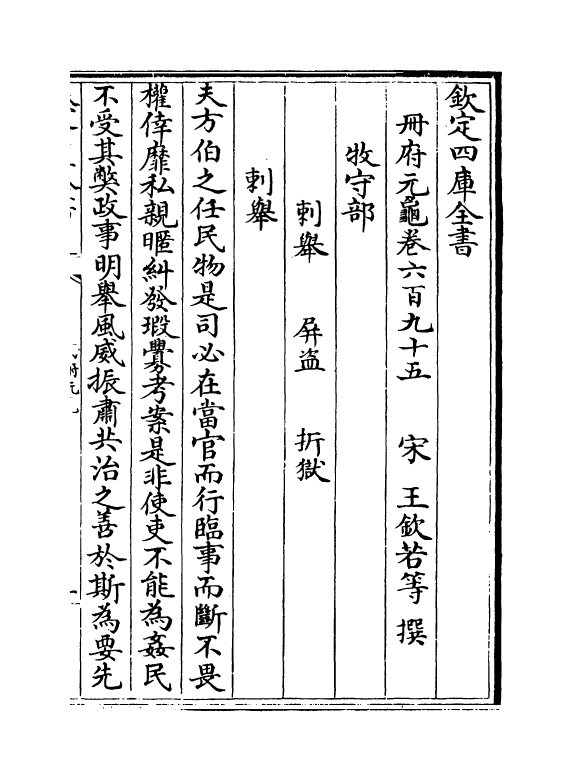 欽定四庫全書
冊府元龜卷六百九十五　宋　王欽若等　撰
牧守部
刺舉　屏盜　折獄
刺舉
夫方伯之任民物是司必在當官而行臨事而斷不畏
權倖靡私親暱糾發瑕釁考案是非使吏不能為姦民
不受其獘政事明舉風威振肅共治之善於斯為要先